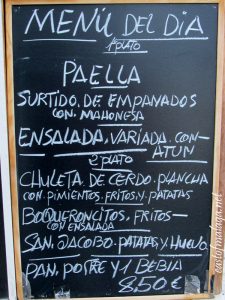 MENÚ DEL DIA
1º PLATO
PAELLA
SURTIDO. DE EMPANADOS
CON. MAHONESA
ENSALADA, VARIADA. CON-
ATUN
2 PLATO
CHULETA. DE CERDO. PLANCHA
CON. PIMIENTOS. FRITOS. Y. PATATAS
BOQUERONCITOS, FRITOS-
CON ENSALADA
SAN, JACOBO. PATATAS, Y HUEVO.
PAN, POSTRE Y 1 BEBIA
8,50 €
eastofmalaga.net